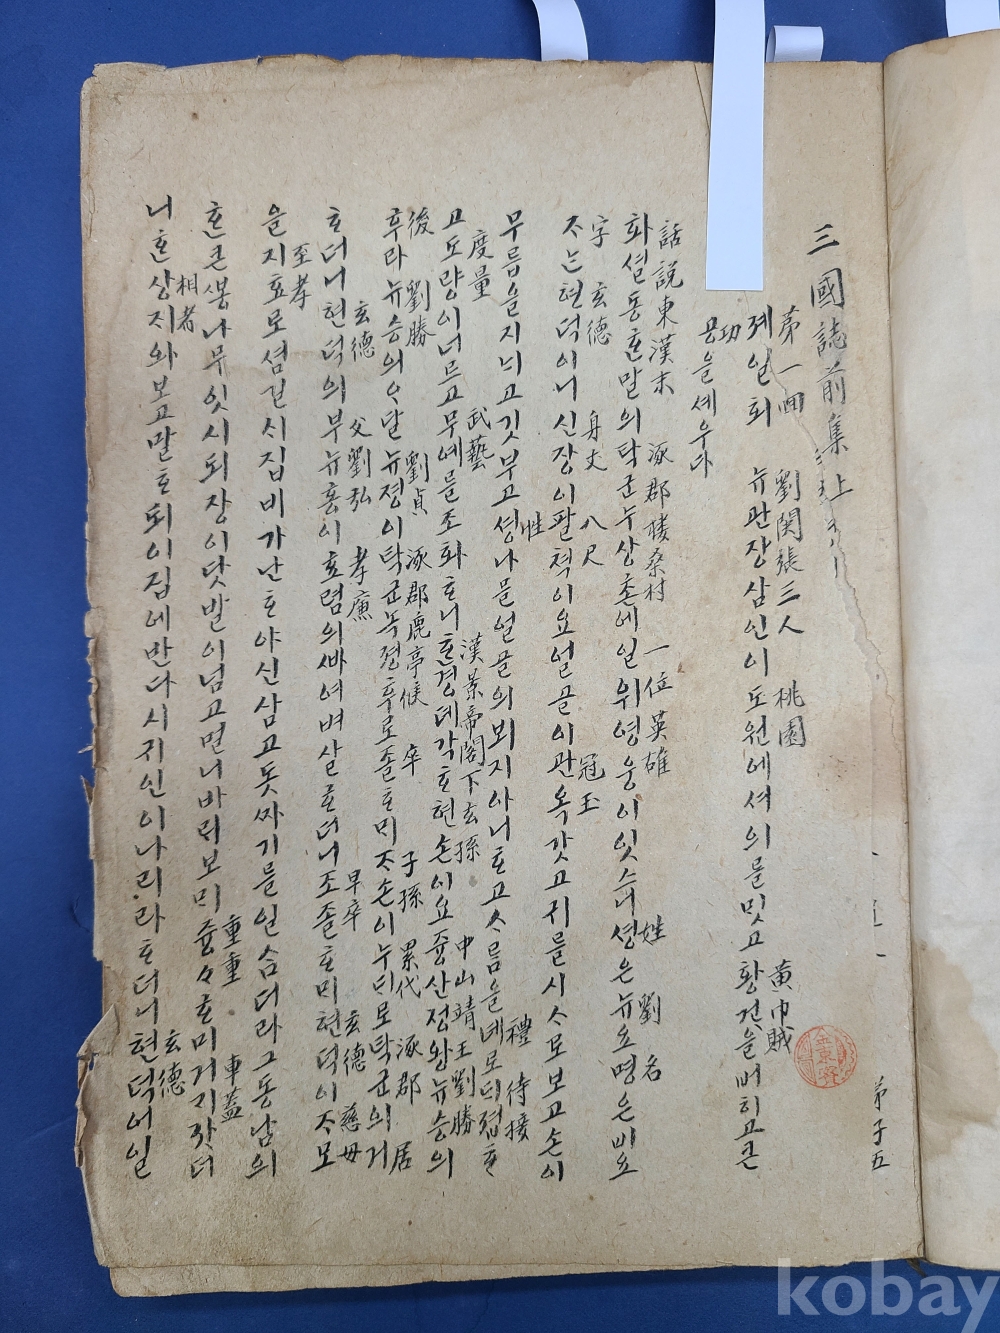 三國誌前集上
第一回 劉関張三人 桃園 黃巾賊
제일회 뉴관장삼인이도원에셔의를밋고황건을버히고큰
功
공을셰우다
話說東漢末 涿郡樓桑村 一位英雄 姓 劉 名
화셜동한말의탁군누상촌에일위영웅이잇스니셩은뉴요명은비요
字 玄德 身丈 八尺 冠玉
ᄌᆞ는현덕이니신장이팔쳑이요얼골이관옥갓고귀를시ᄉᆞ로보고손이
性 禮 待接
무릅을지니고깃부고셩나믈얼골의뵈지아니ᄒᆞ고ᄉᆞ름을녜로ᄃᆡ졉ᄒᆞ
度量 武藝 漢景帝閣下玄孫 中山靖王劉勝
고도량이너르고무예를조화ᄒᆞ니한경뎨각하현손이요즁산졍왕뉴승의
後 劉勝 劉貞 涿郡鹿亭候 卒 子孫 累代 涿郡 居
후라뉴승의아달뉴졍이탁군녹졍후로졸ᄒᆞᄆᆡᄌᆞ손이누ᄃᆡ로탁군의거
玄德 父劉弘 孝廉 早卒 玄德 慈母
ᄒᆞ더니현덕의부뉴홍이효렴의ᄲᅢ여벼살ᄒᆞ더니조졸ᄒᆞᄆᆡ현덕이ᄌᆞ모
至孝
을지효로셤길ᄉᆡ집비가난ᄒᆞ야신삼고돗ᄶᅡ기를일슴더라그동남의
重重 車蓋
흔큰ᄲᅩᆼ나무잇시되장이닷발이넘고면니바라보ᄆᆡ즁々ᄒᆞ미거ᄀᆡ갓더
相者 玄德
니흔상ᄌᆡ와보고말ᄒᆞ되이집에반다시귀인이나리라ᄒᆞ더니현덕어일
第子五
kobay